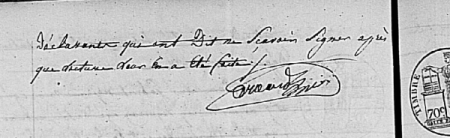 Déclarants qui ont Dit ne Scavoir Signer après
que lecture leur En a été faite /.
TIMBRE
70c